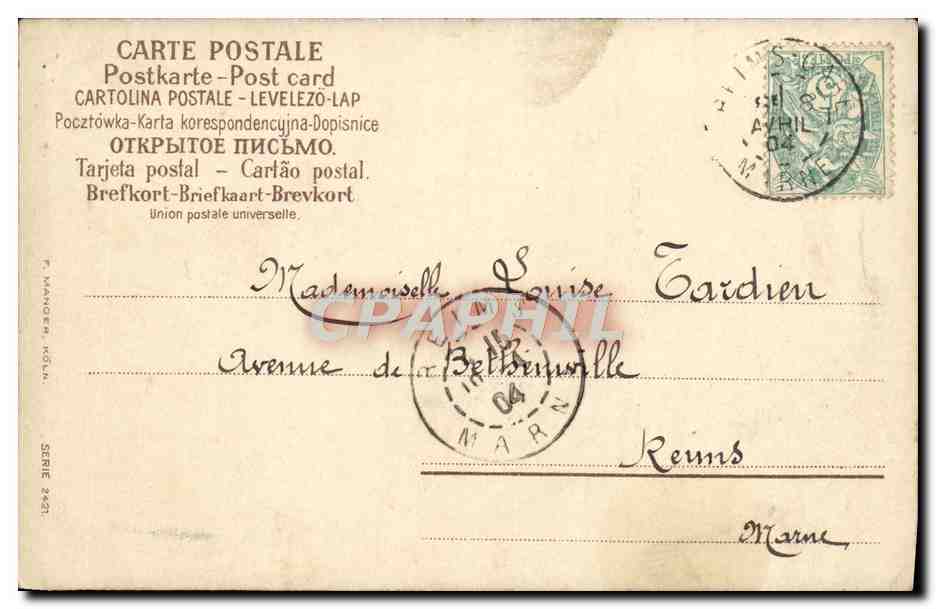 CARTE POSTALE
Postkarte - Post card
CARTOLINA POSTALE - LEVELEZŐ-LAP
Pocztówka-Karta korespondencyjna-Dopisnice
ОТКРЫТОЕ ПИСЬМО.
Tarjeta postal - Cartão postal.
Brefkort-Briefkaart-Brevkort
Union postale universelle.
AVRIL
04
MARNE
Mademoiselle Louise Tardieu
CPAPHIL
Avenue de Bethenville
15
04
MARN
Reims
Marne
F. MANGER, KÖLN.
SERIE 2421.